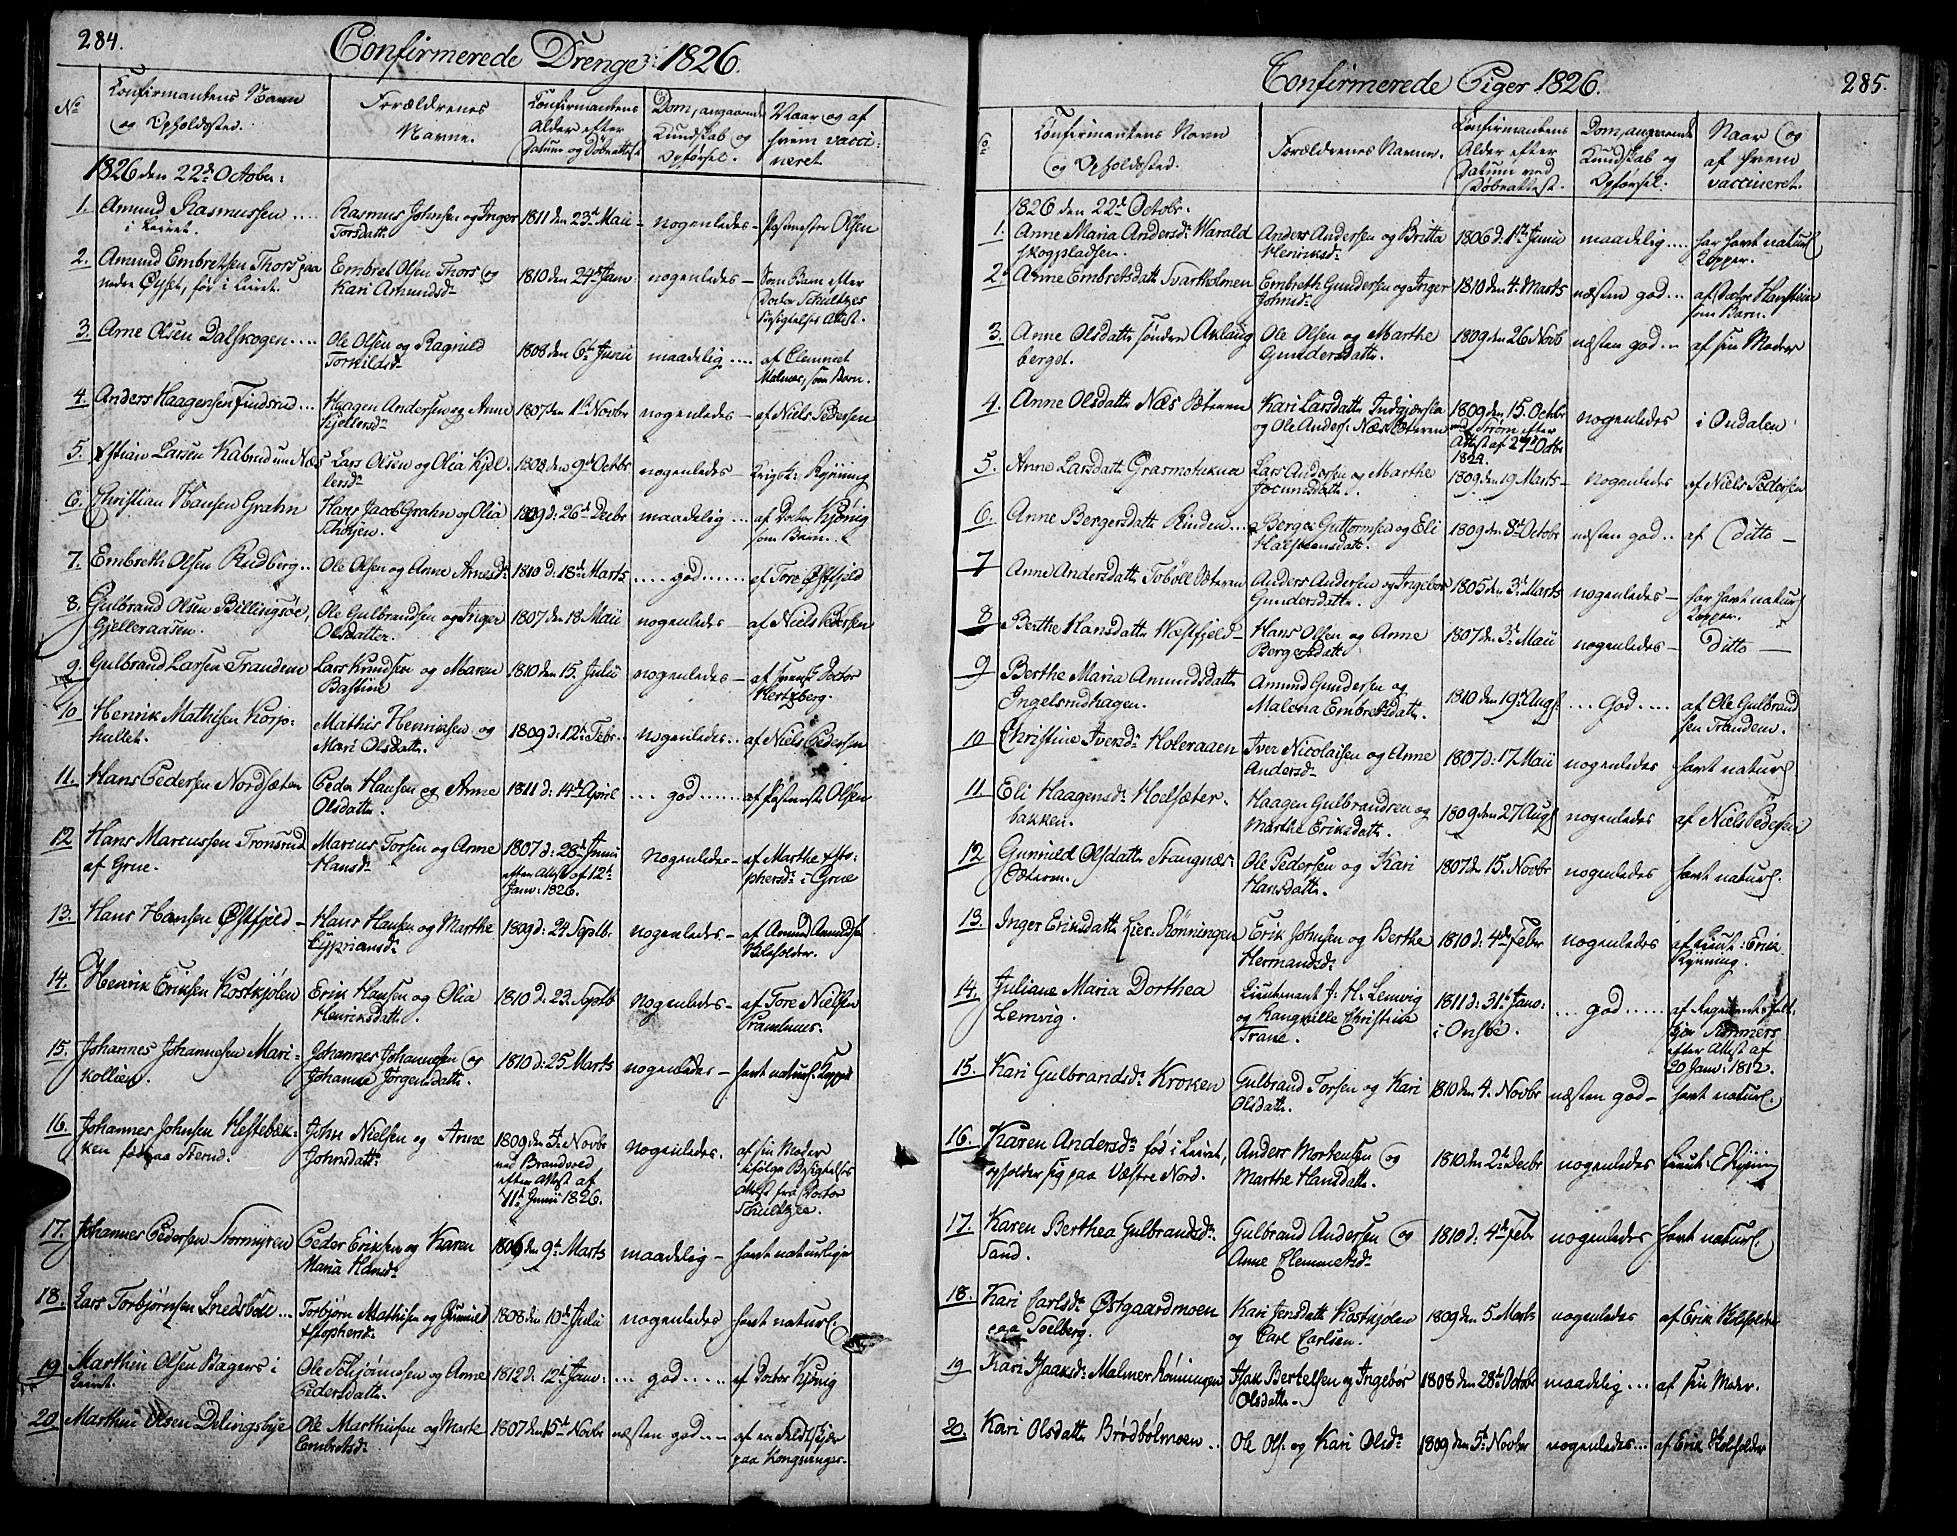 284.
Confirmerede Drenge 1826.
No
Confirmantens Navn
og Opholdssted.
Forældrenes
Navne.
Confirmantens
Alder efter
Datum og Døbeattest
Dom, angaaende
Kundskab og
Opførsel.
Naar og af
hvem vacci-
neret
1826 den 22de October:
1. Amund Rasmussen ....
i Leiret.
Rasmus Johnsen og Inger
Torsdatt
1811 den 23de Maii
nogenledes
Postmester Olsen
2. Amund Embretsen Thors paa
nedre Øysset, før i Leiret.
Embret Olsen Thors og
Kari Amundsd.
1810 den 24de Janv.
nogenledes
som Barn efter
Doctor Schultzes
Besigtelses Attest.
3. Arne Olsen Dalskogen....
Ole Olsen og Ragnild
Torkildsd.
1808 den 6te Junii
maadelig ....
af Clemmet
Malmer, som Barn.
4. Anders Haagensen Findsrud ...
Haagen Andersen og Anne
Kjellersd.
1807 den 1ste Novbr
nogenledes
af Niels Pedersen
5. Larsen
Lars Olsen og Olia Kjel-
lersd.
1808 den 9de Octbr
nogenledes
Rynning
6. Christian Hansen Grahn
Hans Jacob Grahn og Olia
1809 d: 26de Decbr
maadelig ...
af Doctor Kjønig
som Barn.
7. Embreth Olsen Rudberg..
Ole Olsen og Anne Arnesd.
1810 d: 18de Marts
.... god ......
af Tore Østfjeld
8. Gulbrand Olsen Billingsøe,
Gjelleraasen.
Ole Gulbrandsen og Inger
Olsdatter.
1807 den 18. Maii
nogenledes
af Niels Pedersen
9. Gulbrand Larsen Trandem
Lars Knudsen og Maren
Bastine
1810 den 15. Julii
nogenledes
af Doctor
Hertzberg.
10 Henrik Mathisen Korp-
hullet.
Mathis Henriksen og
Mari Olsdatt.
1809 d: 12te Febr.
nogenledes..
af Niels Pedersen
11. Hans Pedersen Nordsæter
Peder Hansen og Anne
Olsdatt.
1811 d: 14de April
... god ......
af Postmester Olsen
12 Hans Marcussen Tronsrud
af Grue.
Marcus Torsen og Anne
Hansd.
1807 d: 28de Junii
efter Attest af 12te
Janv: 1826.
nogenledes
af Marthe Xsto-
phersd. i Grue
13. Hans Hansen Østfjeld
Hans Hansen og Marthe
Cypriansd.
1809 d: 24 Septb.
nogenledes.
af Amund Amundsen
14. Henrik Eriksen Kostkjølen
Erik Hansen og Olia
Henriksdatt.
1810 d: 23. Septb
nogenledes
af Tore Nielsen
15. Johannes Johannesen Mari-
kollien.
Johannes Johannesen og
Johanne Jørgensdatt.
1810 d: 25 Marts
nogenledes
havt naturl. Kopper
16. Johannes Johnsen Hestebæk-
ken før paa
John Nielsen og Anne
Johnsdatt:
1809 den 5. Novbr
ved Brandvold
efter Attest af
11te Junii 1826.
nogenledes.
af sin Moder
ifølge Besigtelses
Attest fra Doctor
Schultzes.
17. Johannes Pedersen Stormyren
Peder Eriksen og Karen
Maria Hansd.
1806 den 9de Marts
maadelig
havt naturlige
18. Lars Torbjørnsen
Torbjørn Mathisen og Gunnild
Xstophersd.
1808 den 10de Julii
nogenledes
havt naturl.
19 Marthin Olsen Bagers i
Leiret.
Ole og Anne
Pedersdatt.
1812 d: 12te Janv:
... god .....
af Doctor Kjønig
20. Marthin Olsen Delingsbye
Ole Marthinsen og Marte
Embretsd.
1807 den 15de Novbr
næsten god ...
af en Feldtskjær
paa Kongsvinger.
Confirmerede Piger 1826.
285.
No
Confirmantens Navn
og Opholdssted.
Forældrenes Navne.
Confirmantens
Alder efter
Datum ved
Døbeattest.
Dom, angaaende
Kundskab og
Opførsel.
Naar og
af hvem
vaccineret.
1826 den 22de Octobr.
1. Anne Maria Andersd. Warald
skogpladsen.
Anders Andersen og Britta
Henriksd.
1806 d. 1ste Junii
maadelig ....
har havt naturl
Kopper.
2. Anne Embretsdatt Svartholmen
Embreth Gundersen og Inger
Johnsd.
1810 den 4. Marts
næsten god ...
af Doctor Hanstein
som Barn.
3. Anne Olsdatt søndre Aslaug
berget.
Ole Olsen og Marthe
Gundersdatt.
1809 den 26 Novb
næsten god ..
af sin Moder
4. Anne Olsdatt Næs Æteren
Kari Larsdatt
og Ole Anders. Næs Æteren
1809 den 15. Octbr
ved Strøm efter
Attest af 27de Octbr
1824.
nogenledes
i Oudalen
5. Anne Larsdatt Grasmotukua
Lars Andersen og Marthe
1809 den 19 Marts
nogenledes
af Niels Pedersen
6. Anne Bergersdatt Rinden...
Berger Guttormsen og Eli
Halstensdatt.
1809 den 8de Octobr
næsten god ..
af Ditto
7 Anne Andersdatt Tobøll Æteren
Anders Andersen og Ingebor
Gundersdatt.
1805 den 3. Marts
nogenledes
har havt naturl
Kopper.
8 Berthe Hansdatt Westfjeld
Hans Olsen og Anne
Bergersdatt.
1807 den 3. Maii
nogenledes
Ditto
9 Berthe Maria Amundsdatt
Ingelsrudhagen.
Amund Gundersen og
Malena Embretsdatt.
1810 den 19de Aug.
... God ....
af Ole Gulbrand
sen Trandem.
10 Christine Iversd. Holeraaen
Iver Nicolaisen og Anne
Andersd
1807 d: 17 Maii
nogenledes
havt naturl.
11 Eli Haagensd. Hoelsæter-
bakken.
Haagen Gulbrandsen og
Marthe Eriksdatt.
1809 den 27 Aug
nogenledes
af Niels Pedersen
12 Gunnild Olsdatt Strangnæs-
Æteren.
Ole Pedersen og Kari
Hansdatt.
1807 den 15. Novbr
nogenledes
havt naturl.
13. Inger Eriksdatt Lier-Rønningen
Erik Johnsen og Berthe
Hermandsd.
1810 d: 4de Febr
nogenledes
af Lieut: Erik
Rynning.
14. Juliane Maria Dorthea
Lemvig.
Lieutenant J. H. Lemvig
og Christine
Trane.
1811 d: 31te Janv:
i Onsøe.
... god ......
af
efter Attest af
20 Janv: 1812.
15. Kari Gulbrandsd. Kroken
Gulbrand Torsen og Kari
Olsdatt.
1810 den 4. Novbr
næsten god
havt naturl.
16. Karen Andersd. fød i Leiret,
opholder sig paa Vestre Nord.
Anders Mortensen og
Marthe Hansdatt.
1810 den 2de Decbr
nogenledes
Lieut: ERynning
17. Karen Berthea Gulbrandsd.
Sand.
Gulbrand Andersen og
Anne Clemmetsd.
1810 d: 4de Febr
nogenledes
havt naturl.
18. Kari Carlsd. Østgaardmoen
paa Soelberg.
Kari Jensdatt Kostkjølen
og Carl Carlsen.
1809 den 5 Marts
nogenledes
af Erik
19 Kari Isaaksd. Malmer Rønningen
Isak Bertelsen og Ingebor
Olsdatt.
1808 den 28de Octobr
maadelig ...
af sin Moder.
20. Kari Olsdatt Brødbølmoen..
Ole Ols. og Kari Olsd.
1809 den 5te Novbr
nogenledes...
af Erik